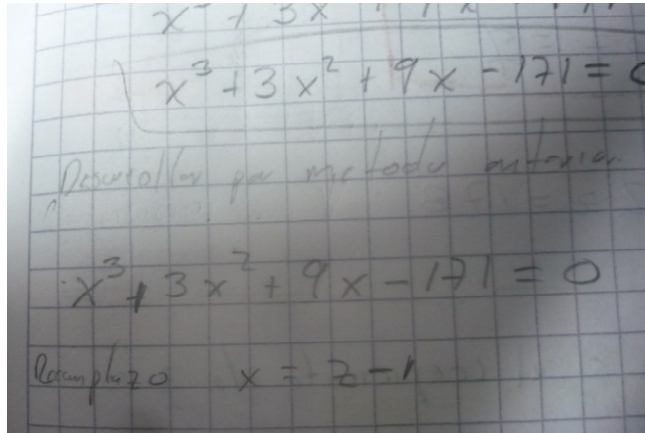 x³ + 3x² + 9x - 171 = 0
Desarrollar por metodo anterior
x³ + 3x² + 9x - 171 = 0
Reemplazo x = z - 1